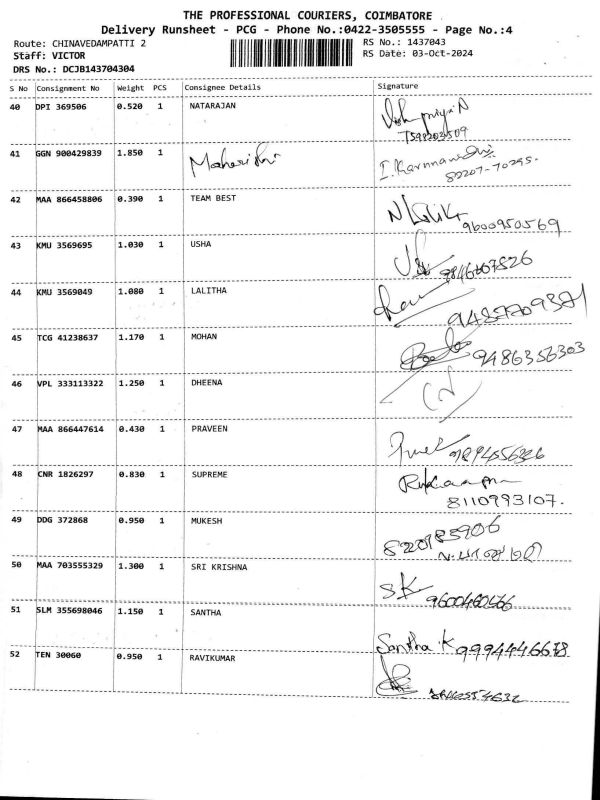 THE PROFESSIONAL COURIERS, COIMBATORE
Delivery Runsheet - PCG - Phone No.:0422-3505555 - Page No.:4
Route: CHINAVEDAMPATTI 2 RS No.: 1437043
Staff: VICTOR RS Date: 03-Oct-2024
DRS No.: DCJB143704304
S No Consignment No Weight PCS Consignee Details Signature
40 DPI 369506 0.520 1 NATARAJAN
41 GGN 900429839 1.850 1
82207-70295.
42 MAA 866458806 0.390 1 TEAM BEST
9600950569
43 KMU 3569695 1.030 1 USHA
44 KMU 3569049 1.080 1 LALITHA
45 TCG 41238637 1.170 1 MOHAN
9486356303
46 VPL 333113322 1.250 1 DHEENA
47 MAA 866447614 0.430 1 PRAVEEN
48 CNR 1826297 0.830 1 SUPREME
8110993107.
49 DDG 372868 0.950 1 MUKESH
50 MAA 703555329 1.300 1 SRI KRISHNA
SK
51 SLM 355698046 1.150 1 SANTHA
Santha K
52 TEN 30060 0.950 1 RAVIKUMAR